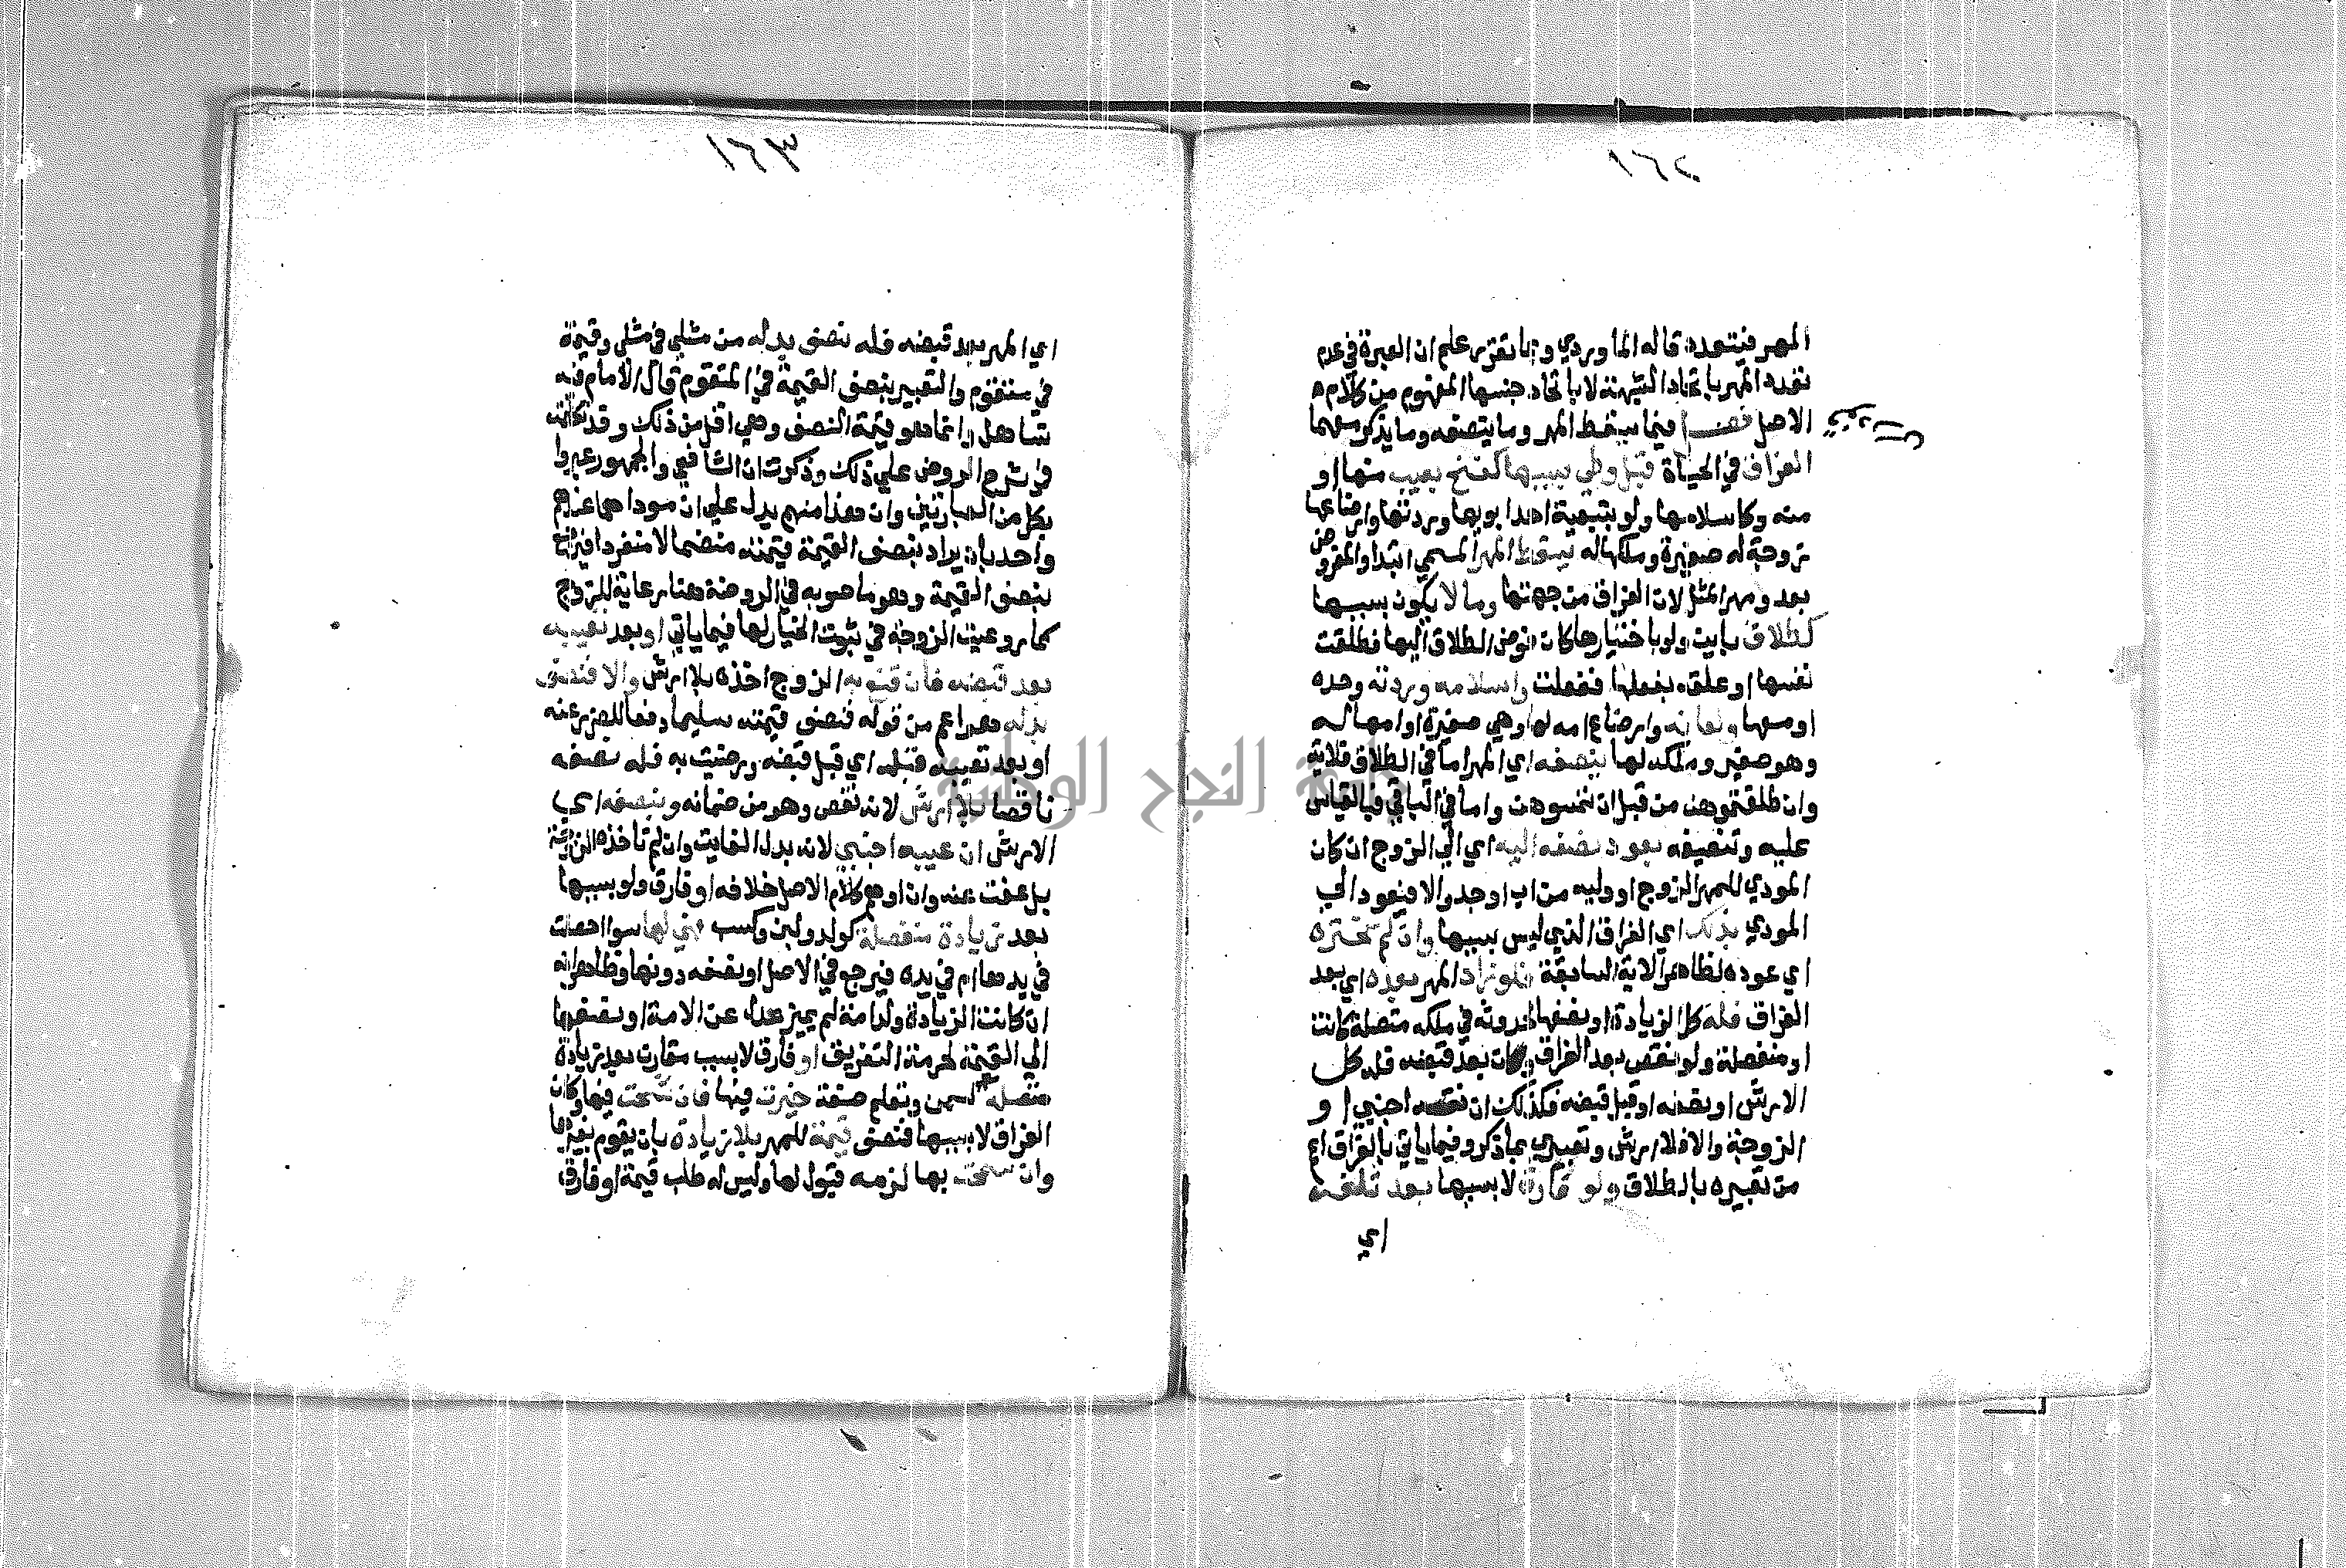 ١٦٢
المهر فيتعدد قاله الماوردي وبما تقرر علم ان العبرة في عدم
تعدد المهر باتحاد الشبهة لا باتحاد جنسها المفهوم من كلام
الاصل فصل فيما يسقط المهر وما ينصفه وما يذكر معهما
الفراق في الحياة قبل وطي بسببها كفسخ بعيب منها او
منه وكاسلامها ولو بتبعية احد ابويها وردتها وارضاعها
زوجة له صغيرة وملكها له يسقط المهر المسمي ابتدا والمفروض
بعد ومهر المثل لان الفراق من جهتها وما لا يكون بسببها
كطلاق باين ولو باختيارها كان فوض الطلاق اليها فطلقت
نفسها او علقه بفعلها ففعلت واسلامه وردته وحده
او معها ولعانه وارضاع امه لها وهي صغيرة او امها له
وهو صغير وملكه لها ينصفه اي المهر اما في الطلاق فلاية
وان طلقتموهن من قبل ان تمسوهن واما في الباقي فبالقياس
عليه وتنصيفه بعود نصفه اليه اي الي الزوج ان كان
المودي للمهر الزوج او وليه من اب او جد والا فيعود الي
المودي بذلك اي الفراق الذي ليس بسببها وان لم يختره
اي عوده لظاهر الاية السابقة فلو زاد المهر بعده اي بعد
الفراق فله كل الزيادة او نصفها لحدوثه في ملكه متصلة كانت
او منفصلة ولو نقص بعد الفراق وكان بعد قبضه فله كل
الارش او نصفه او قبل قبضه فكذلك ان نقصه اجنبي او
الزوجة والا فلا ارش وتعبيري بما ذكر وفيما ياتي بالفراق اعم
من تعبيره بالطلاق ولو فارق لا بسببها بعد تلفه
اي
١٦٣
اي المهر بعد قبضه فله نصف بدله من مثلي في مثلي وقيمة
في متقوم والتعبير بنصف القيمة في المتقوم قال الامام فيه
تساهل وانما هو قيمة النصف وهي اقل من ذلك وقد تكلمت
في شرح الروض علي ذلك وذكرت ان الشافعي والجمهور عبروا
بكل من العبارتين وان هذا منهم يدل علي ان موداهما عندهم
واحد بان يراد بنصف القيمة قيمته منضما لا منفردا فيرجع
بنصف القيمة وهو ما صوبه في الروضة هنا رعاية للزوج
كما روعيت الزوجة في ثبوت الخيار لها فيما ياتي او بعد تعييبه
بعد قبضه فان قنع به الزوج اخذه بلا ارش والا فنصف
بدله هو اعم من قوله فنصف قيمته سليما دفعا للضرر عنه
او بعد تعييبه قبله اي قبل قبضه ورضيت به فله نصفه
ناقصا بلا ارش لانه نقص وهو من ضمانه وبنصفه اي
الارش ان عيبه اجنبي لانه بدل الفايت وان لم تاخذه الزوجة
بل عفت عنه وان اوهم كلام الاصل خلافه او فارق ولو بسببها
بعد زيادة منفصلة كولد ولبن وكسب فهي لها سوا احصلت
في يدها ام في يده فيرجع في الاصل او نصفه دونها وظاهر انه
ان كانت الزيادة ولد امة لم يميز عدل عن الامة او نصفها
الي القيمة لحرمة التفريق او فارق لا بسبب مقارن بعد زيادة
متصلة كسمن وتعلم صنعة خيرت فيها فان شحت فيها وكان
الفراق لا بسببها فنصف قيمة للمهر بلا زيادة بان يقوم بغيرها
وان سمحت بها لزمه قبول لها وليس له طلب قيمة او فارق
جامعة النجاح الوطنية